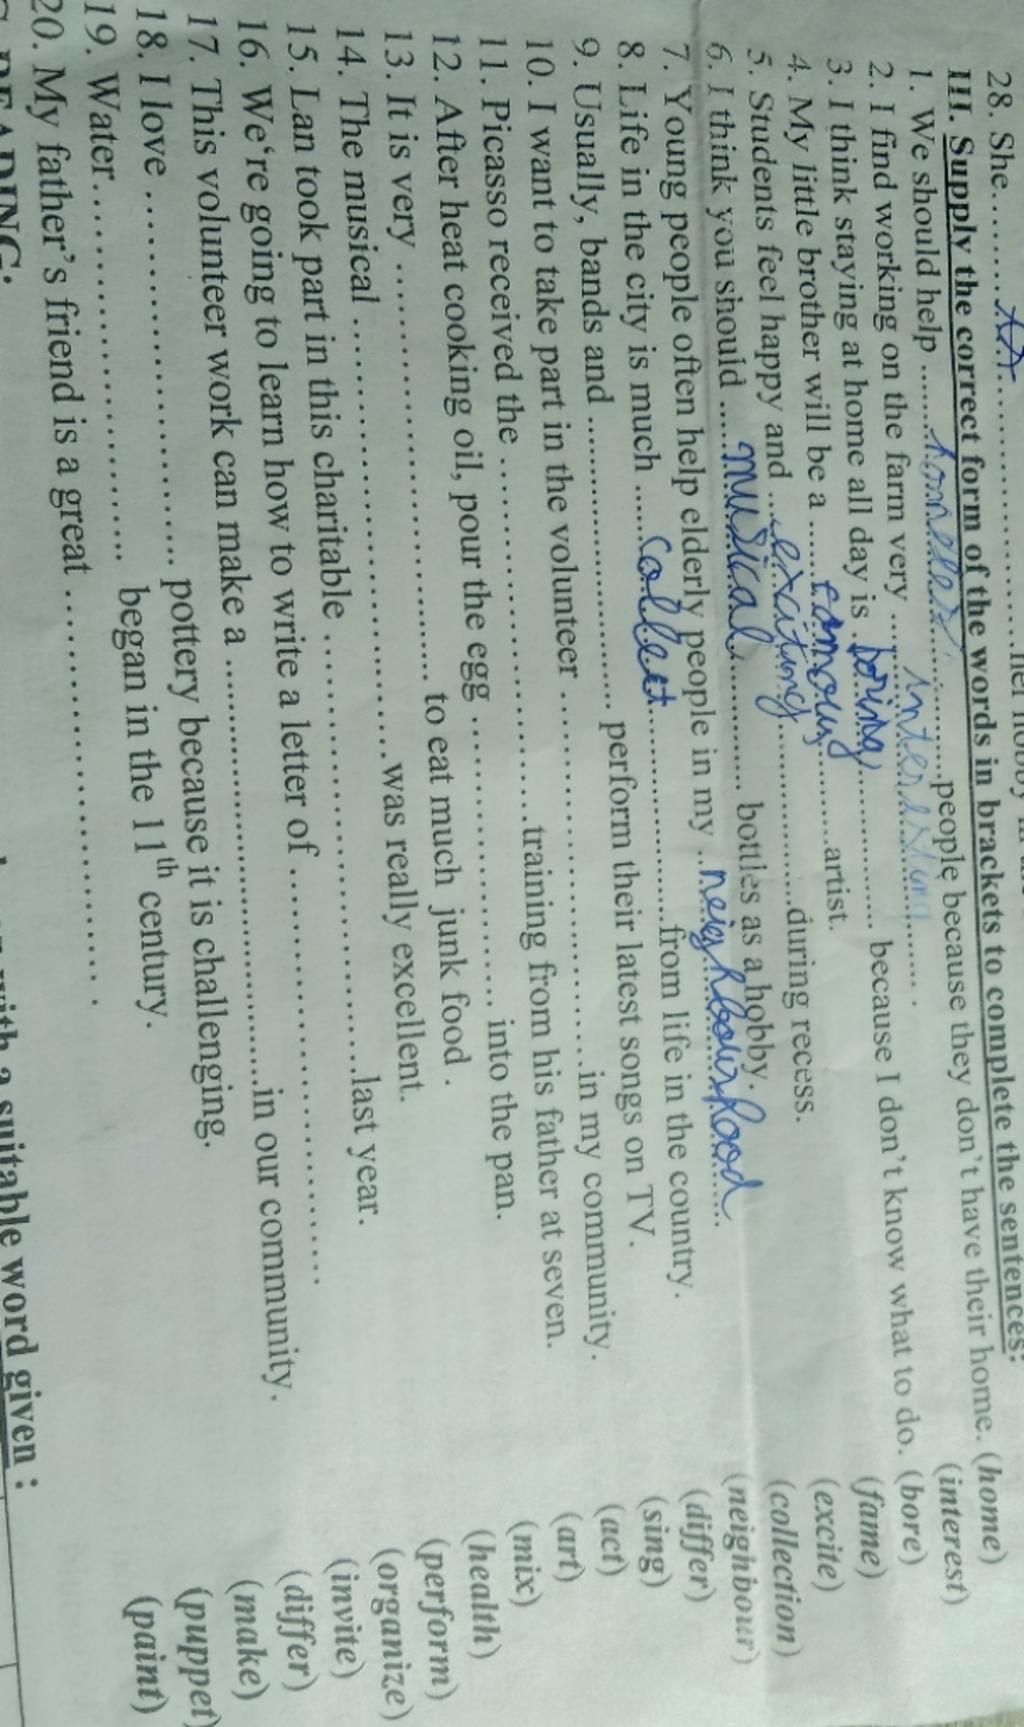 28. She..........
III. Supply the correct form of the words in brackets to complete the sentences:
1. We should help .......homeless.......people because they don't have their home. (home)
2. I find working on the farm very .....interesting........ . (interest)
3. I think staying at home all day is ..boring.......... because I don't know what to do. (bore)
4. My little brother will be a .....famous........artist. (fame)
5. Students feel happy and ....exciting............during recess. (excite)
6. I think you should ....musical............ bottles as a hobby. (collection)
7. Young people often help elderly people in my ..neighbourhood..... (neighbour)
8. Life in the city is much .....collect................from life in the country. (differ)
9. Usually, bands and ........................ perform their latest songs on TV. (sing)
10. I want to take part in the volunteer ..............................in my community. (act)
11. Picasso received the ..............................training from his father at seven. (art)
12. After heat cooking oil, pour the egg ........................ into the pan. (mix)
13. It is very ................................... to eat much junk food . (health)
14. The musical ...................................was really excellent. (perform)
15. Lan took part in this charitable ...................................last year. (organize)
16. We're going to learn how to write a letter of .............................. (invite)
17. This volunteer work can make a ...................................in our community. (differ)
18. I love .............................. pottery because it is challenging. (make)
19. Water.............................. began in the 11th century. (puppet)
20. My father's friend is a great ................................... . (paint)
with a suitable word given :